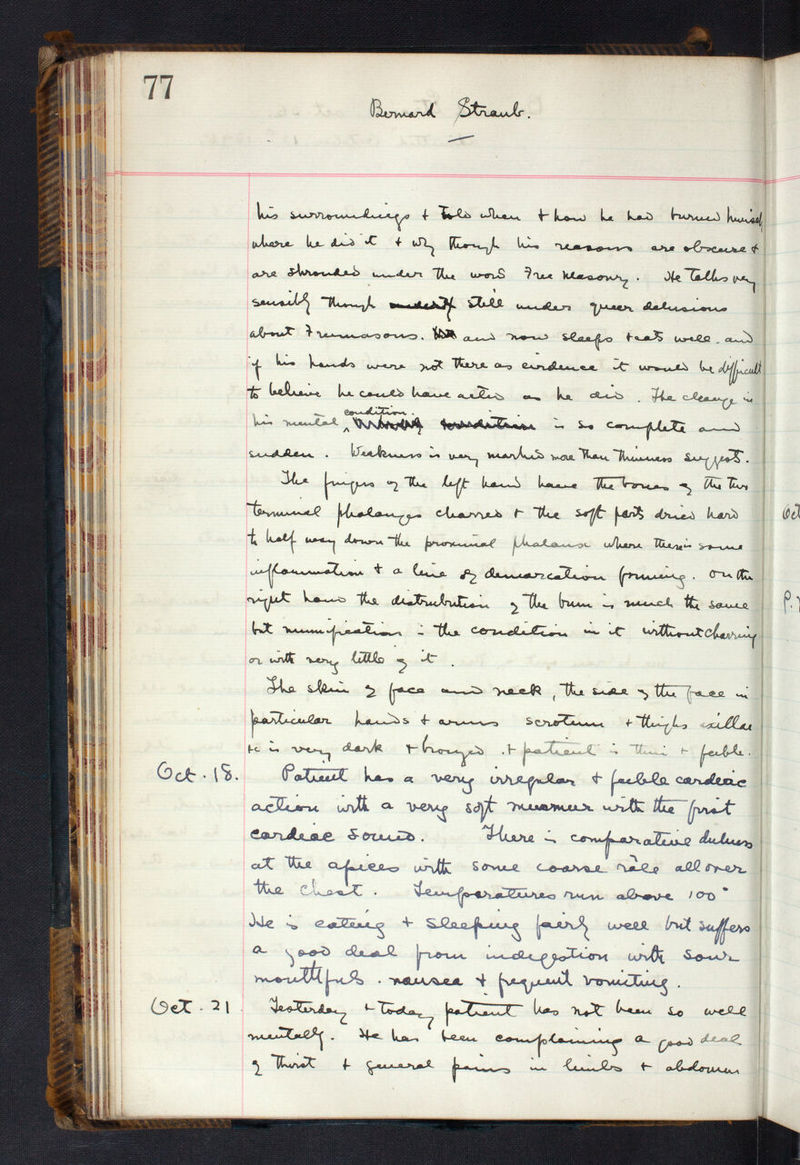 77
Bernard Straub.
his surroundings + told when + how he had burned himself
where he did it + why though his reasons are obscure +
are shrouded under the word Free Masonry. He talks very
sensibly though still under queer delusions
about Freemasons. and now sleeps + eats well. and
if his hands were not there as evidence it would be difficult
to believe he could have acted as he did. The change in
his mental condition is so complete and
sudden. Weakness is very marked more than thinness suggests.
The fingers of the left hand have the bones of the two
terminal phalanges charred + the soft parts dried hard
to half way down the proximal phalanx where there is some
inflammation + a line of demarcation forming. On the
right hand the distribution of the burn is much the same
but mummification is the condition in it without charring
or with very little of it.
The skin of face and neck, the side of the face in
particular hands + arms scrotum + thighs axillae
&c is very dark + bronzed. + patient is thin + feeble.
Oct. 18. Patient has a very irregular + feeble cardiac
action with a very soft murmur with the first
cardiac sound. There is comparative dulness
at the apices with some coarse râle all over
the chest. Temperatures run above 100°
He is eating + sleeping fairly well but suffers
a good deal from indigestion with sour
mouthfuls. nausea + frequent vomiting.
Oct. 21 Yesterday + today patient has not been so well
mentally. He has been complaining a good deal
of thirst + general pains in limbs + abdomen
Oct
P.